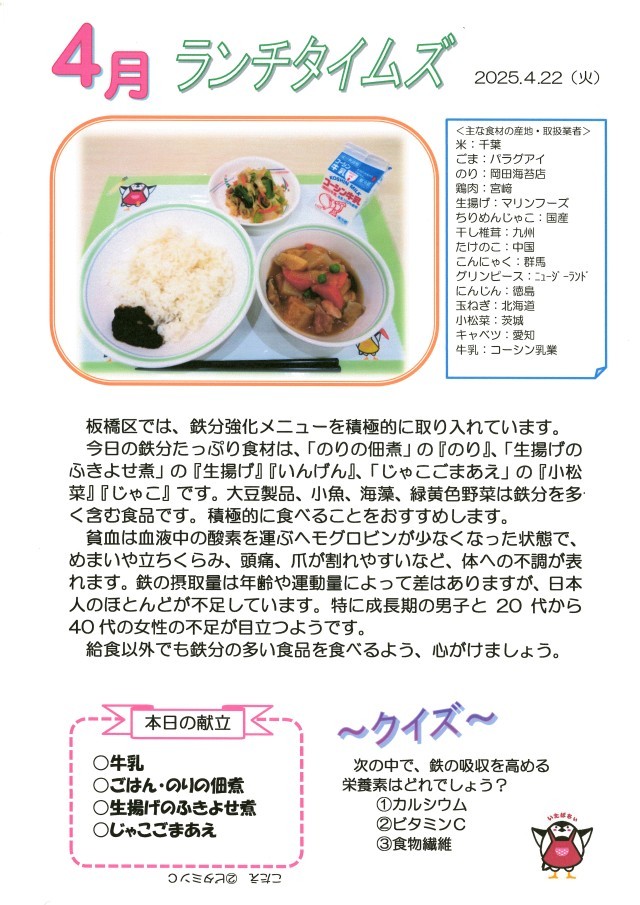 4月 ランチタイムズ 2025.4.22（火）
＜主な食材の産地・取扱業者＞
米：千葉
ごま：パラグアイ
のり：岡田海苔店
鶏肉：宮﨑
生揚げ：マリンフーズ
ちりめんじゃこ：国産
干し椎茸：九州
たけのこ：中国
こんにゃく：群馬
グリンピース：ﾆｭｰｼﾞｰﾗﾝﾄﾞ
にんじん：徳島
玉ねぎ：北海道
小松菜：茨城
キャベツ：愛知
牛乳：コーシン乳業
コーシン牛乳
板橋区では、鉄分強化メニューを積極的に取り入れています。
今日の鉄分たっぷり食材は、「のりの佃煮」の『のり』、「生揚げの
ふきよせ煮」の『生揚げ』『いんげん』、「じゃこごまあえ」の『小松
菜』『じゃこ』です。大豆製品、小魚、海藻、緑黄色野菜は鉄分を多
く含む食品です。積極的に食べることをおすすめします。
貧血は血液中の酸素を運ぶヘモグロビンが少なくなった状態で、
めまいや立ちくらみ、頭痛、爪が割れやすいなど、体への不調が表
れます。鉄の摂取量は年齢や運動量によって差はありますが、日本
人のほとんどが不足しています。特に成長期の男子と 20 代から
40代の女性の不足が目立つようです。
給食以外でも鉄分の多い食品を食べるよう、心がけましょう。
本日の献立
○牛乳
○ごはん・のりの佃煮
○生揚げのふきよせ煮
○じゃこごまあえ
～クイズ～
次の中で、鉄の吸収を高める
栄養素はどれでしょう？
①カルシウム
②ビタミンC
③食物繊維
いたばさい
こたえ ②ビタミンC